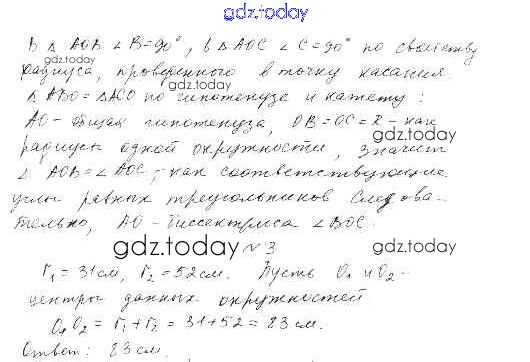 gdz.today
В △ AOB ∠B=90°, в △AOC ∠C=90° по свойству
gdz.today
радиуса, проведенного в точку касания.
gdz.today
△ABO=△ACO по гипотенузе и катету:
AO-общая гипотенуза, OB=OC=R-как
gdz.today
радиусы одной окружности, значит
∠ AOB=∠AOC,-как соответствующие
углы равных треугольников Следова-
тельно, AO-биссектриса ∠BOC.
gdz.today №3 gdz.today
r₁=31см, r₂=52см. Пусть O₁ и O₂-
центры данных окружностей.
O₁O₂=r₁+r₂=31+52=83см.
gdz.today
Ответ: 83 см.